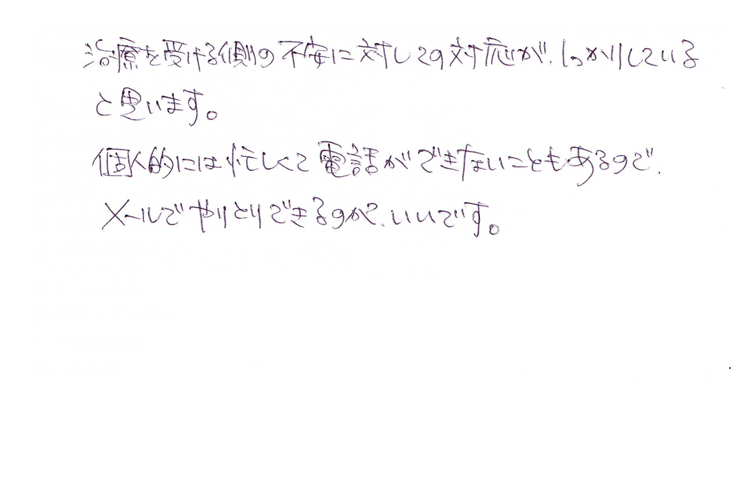 治療を受ける側の不安に対しての対応が、しっかりしている
と思います。
個人的には忙しくて電話ができないこともあるので、
メールでやりとりできるのが、いいです。